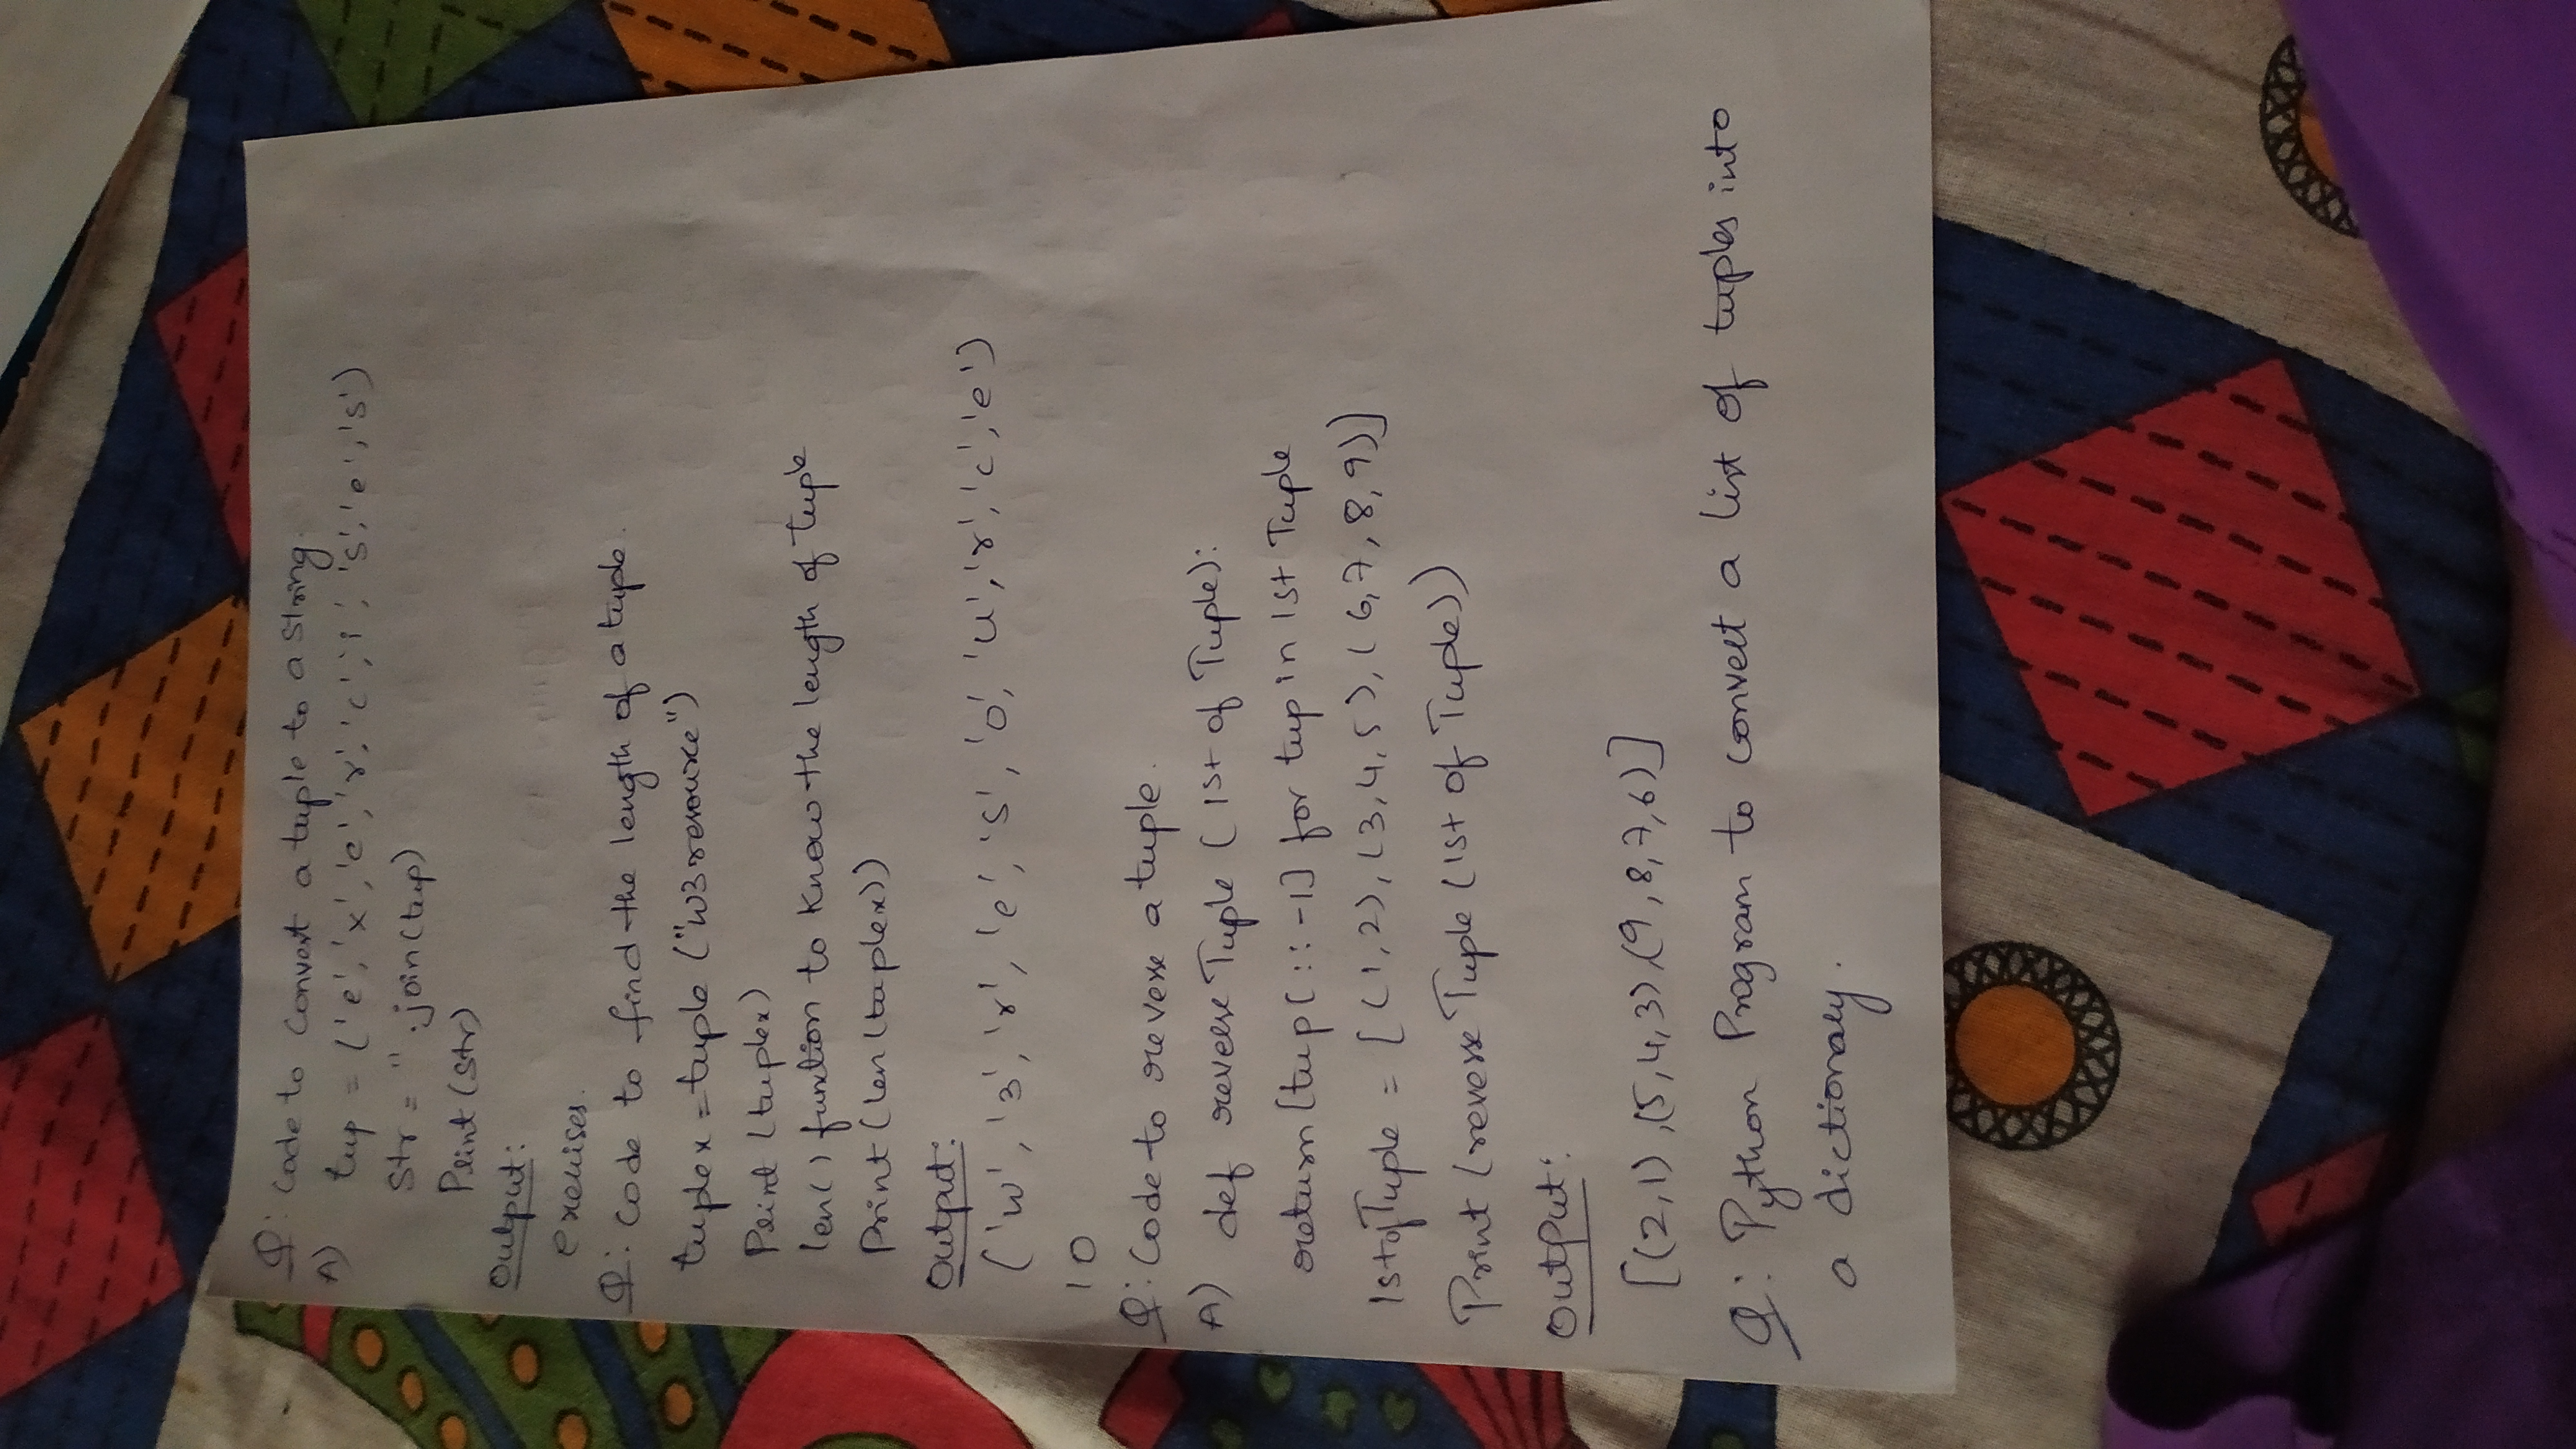 Q: Code to Convert a tuple to a String.
A) tup = ('e', 'x', 'e', 'r', 'c', 'i', 's', 'e', 's')
Str = ''.join(tup)
Print (Str)
Output:
exercises.
Q: Code to find the length of a tuple.
tuplex = tuple ("w3resource")
Print (tuplex)
len() function to know the length of tuple
Print (len (tuplex))
Output:
('w', '3', 'r', 'e', 's', 'o', 'u', 'r', 'c', 'e')
10
Q: Code to reverse a tuple.
A) def reverse Tuple ( 1st of Tuple):
return [tup[::-1] for tup in 1st Tuple
1st of Tuple = [(1,2), (3,4,5), (6,7,8,9)]
Print (reverse Tuple (1st of Tuple))
Output:
[(2,1),(5,4,3),(9,8,7,6)]
Q: Python Program to convert a list of tuples into
a dictionary.